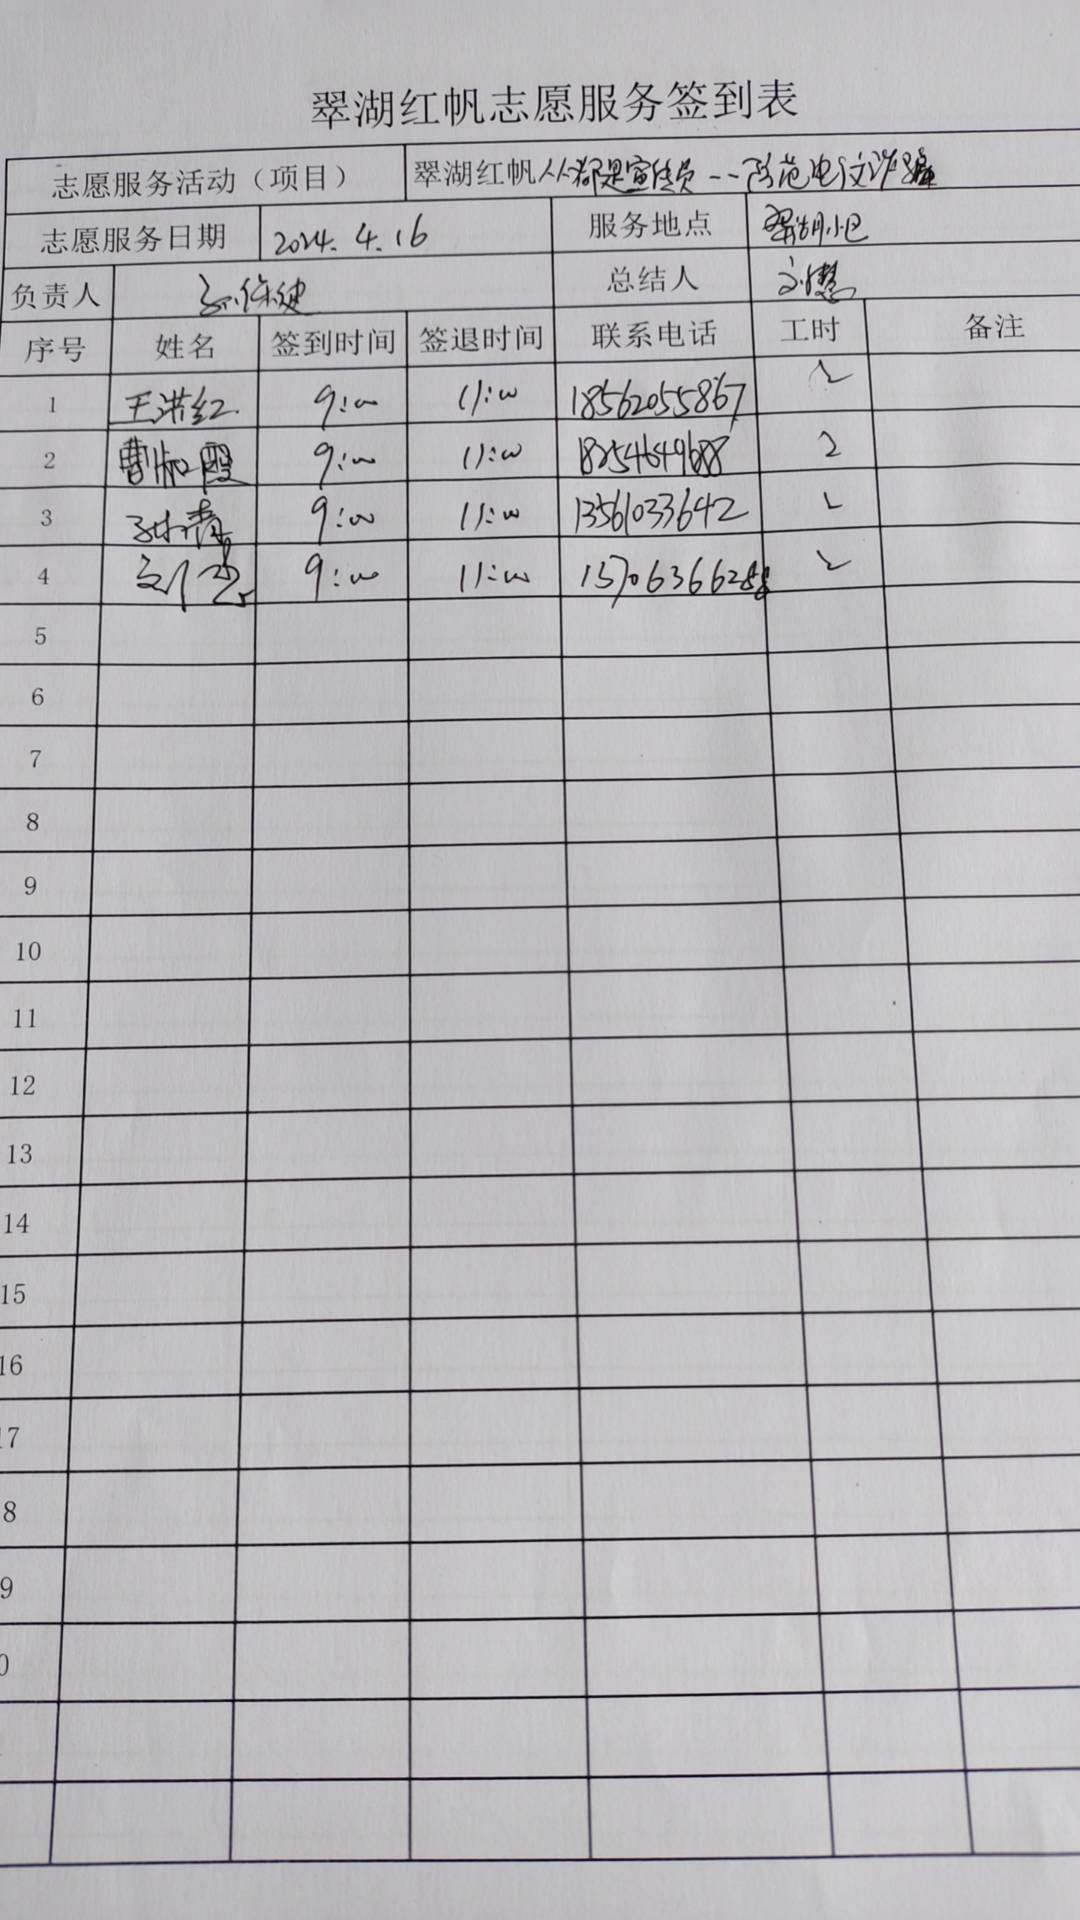 翠湖红帆志愿服务签到表
志愿服务活动（项目） 翠湖红帆人人都是宣传员--防范电信诈骗
志愿服务日期 2024.4.16 服务地点 翠湖小区
负责人 总结人 刘慧
序号 姓名 签到时间 签退时间 联系电话 工时 备注
1 王洪红 9:00 11:00 18562055867 2
2 曹 霞 9:00 11:00 18254649688 2
3 孙青 9:00 11:00 13561033642 2
4 刘 9:00 11:00 15706366288 2
5
6
7
8
9
10
11
12
13
14
15
16
17
8
9
0